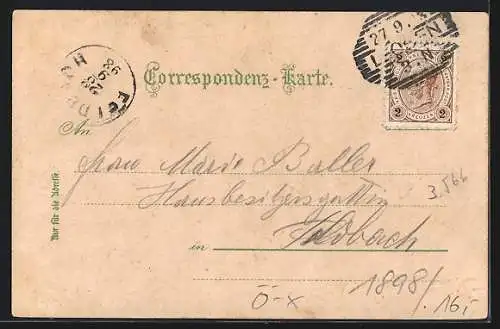 FELDBACH
28 9 98
27.9.
Correspondenz-Karte.
2 KREUZER 2
An
Frau Marie Baller
Hausbesitzersgattin
in Feldbach
Nur für die Adresse.
3.566
1898/
Ö-X
16,-